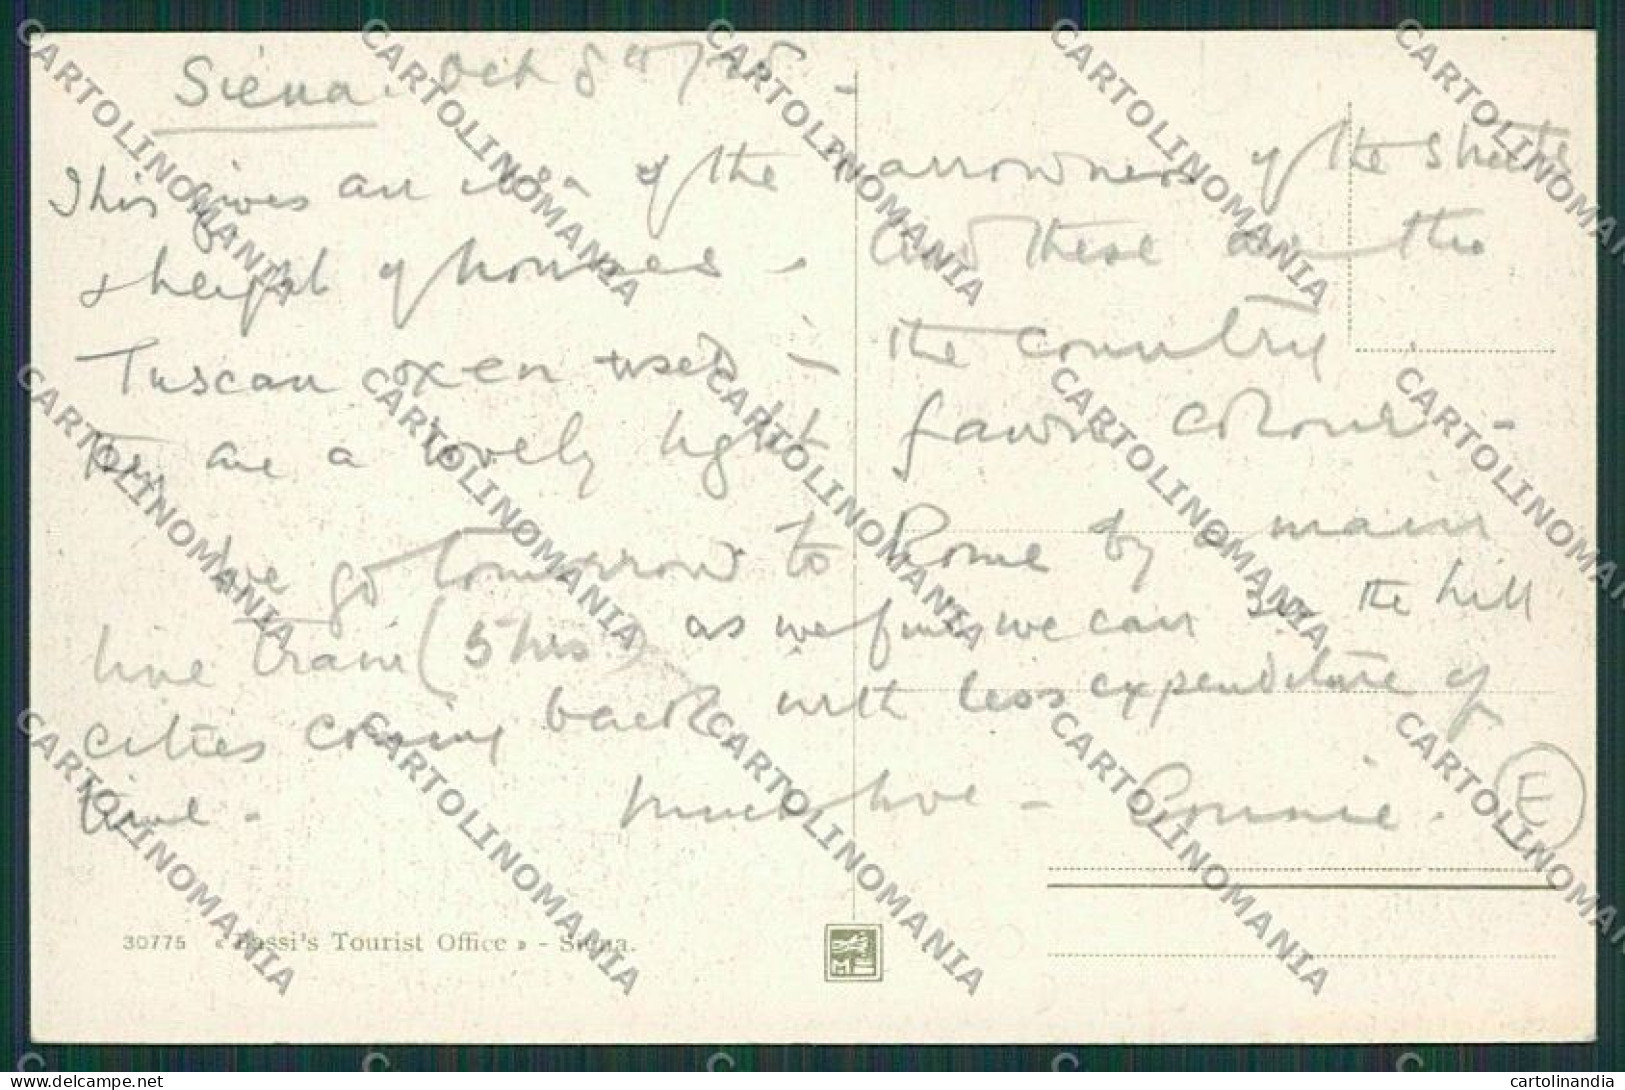 Siena. Oct 8th/28 -
This gives an idea of the narrowness of the streets
& height of houses - and these are the
Tuscan oxen used - the country
are a lovely light fawn colour -
We go tomorrow to Rome by main
line train (5 hrs) as we find we can see the hill
cities coming back with less expenditure of
time - Much love - Connie.
E
30775 « Bassi's Tourist Office » - Siena.
delcampe.net
cartolinandia